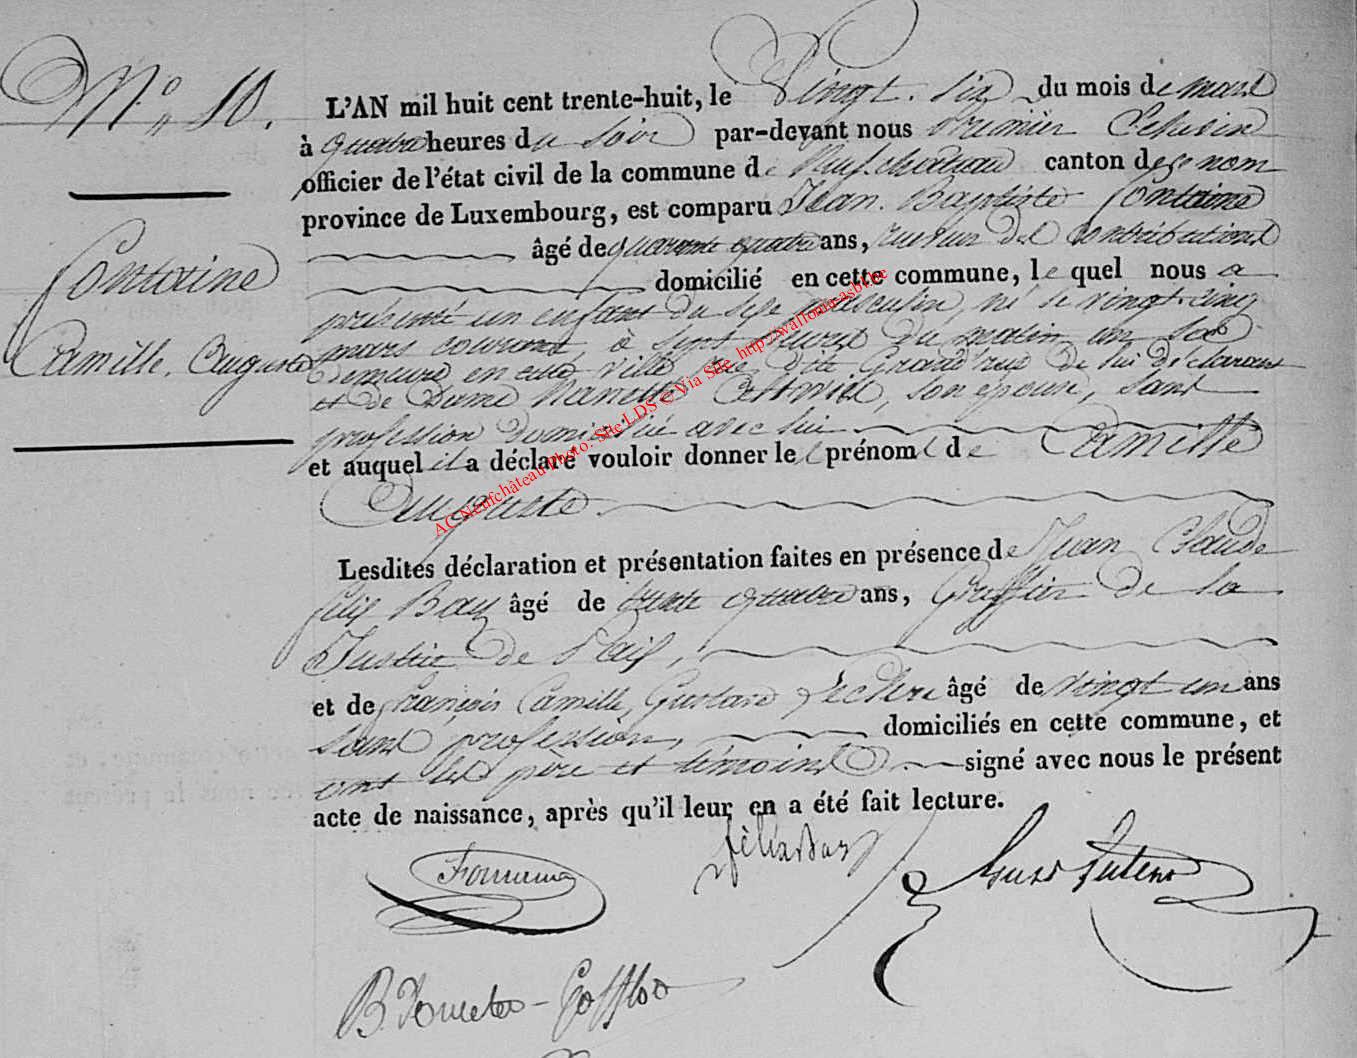 N° 10.
Fontaine
Camille Auguste
L'AN mil huit cent trente-huit, le Vingt six du mois de mars
à quatre heures du soir par-devant nous Premier Echevin
officier de l'état civil de la commune de Neufchâteau canton de ce nom
province de Luxembourg, est comparu Jean Baptiste Fontaine
âgé de quarante quatre ans, receveur des Contributions
domicilié en cette commune, le quel nous a
présenté un enfant du sexe masculin, né le vingt-cinq
mars courant, à sept heures du matin en sa
demeure en cette ville rue dite Grand'rue de lui déclarant
et de Dame Nanette, son épouse, sans
profession domiciliée avec lui
et auquel il a déclaré vouloir donner le prénom de Camille
Auguste
Lesdites déclaration et présentation faites en présence de Jean Claude
Félix Bay âgé de trente quatre ans, Greffier de la
Justice de Paix,
et de François Camille Gustave Leclere âgé de vingt un ans
sans profession, domiciliés en cette commune, et
ont les père et témoins signé avec nous le présent
acte de naissance, après qu'il leur en a été fait lecture.
AC Neufchâteau Photo: Site LDS © Via Site http://wallonia-asbl.be
Fontaine
félix Bay